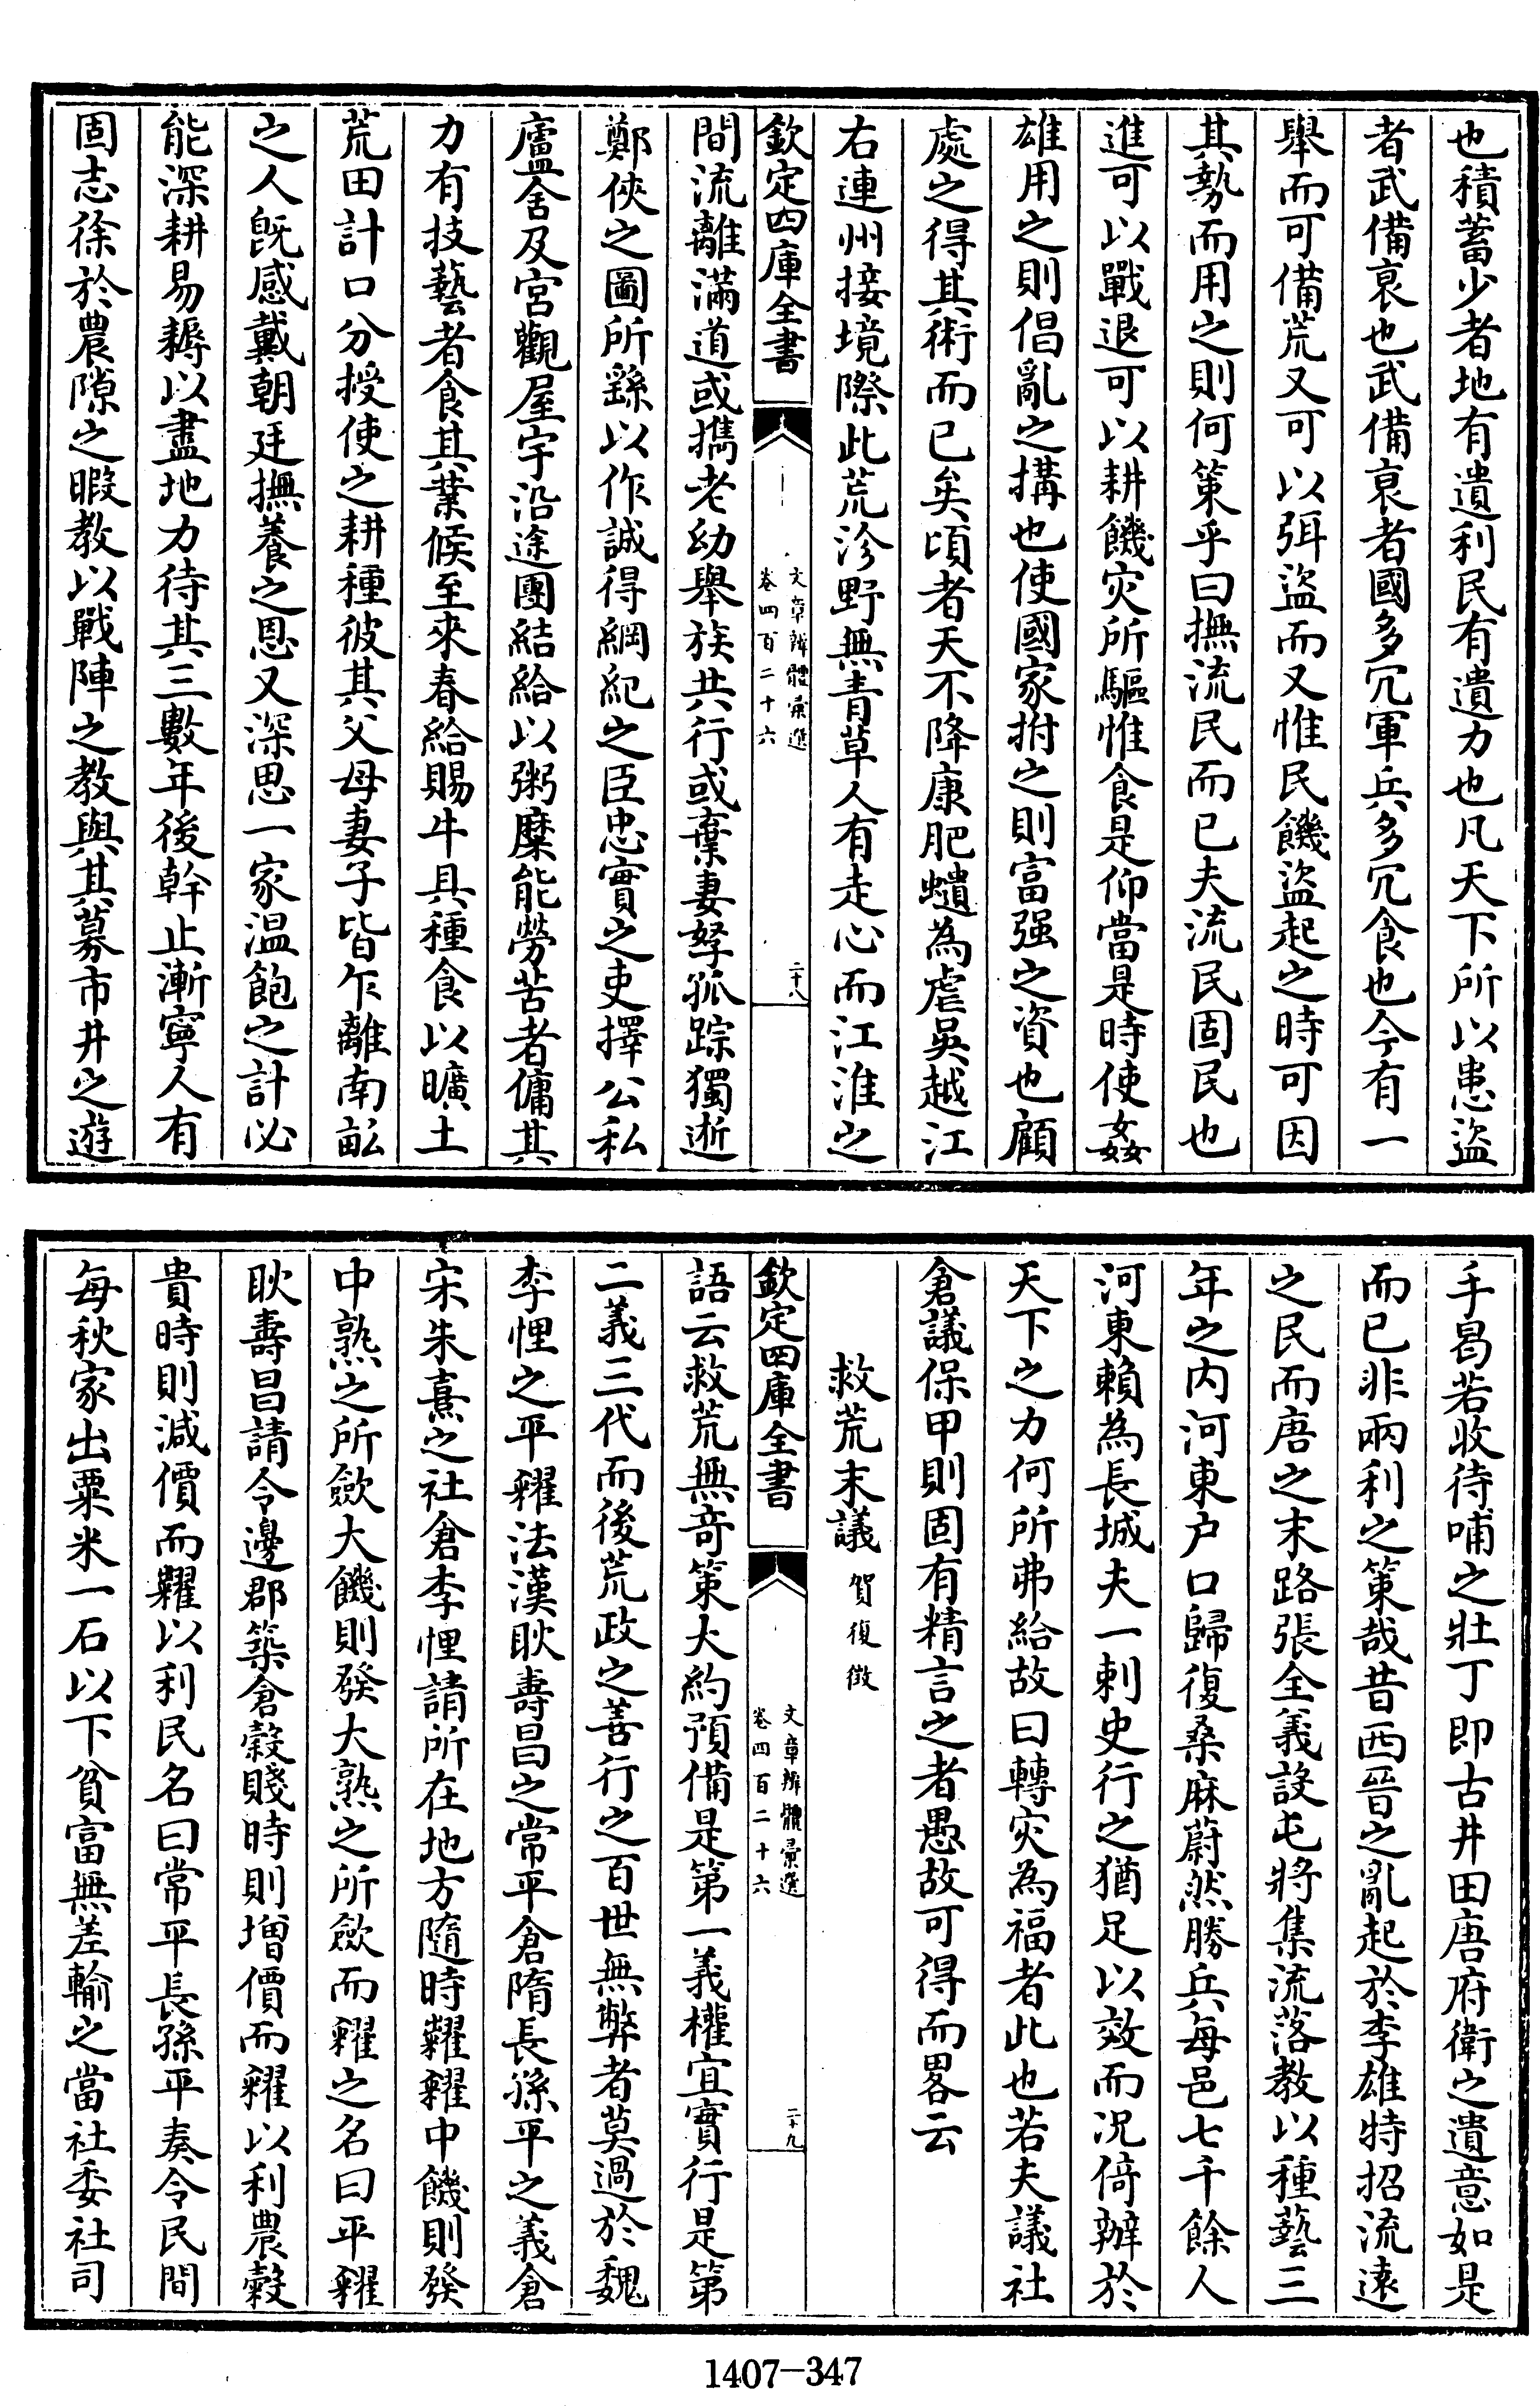 也積蓄少者地有遺利民有遺力也凡天下所以患盜
者武備裒也武備裒者國多冗軍兵多冗食也今有一
舉而可備荒又可以弭盜而又惟民饑盜起之時可因
其勢而用之則何策乎曰撫流民而已夫流民固民也
進可以戰退可以耕饑灾所驅惟食是仰當是時使姦
雄用之則倡亂之搆也使國家拊之則富强之資也顧
處之得其術而已矣頃者天不降康肥䗽為虐吳越江
右連州接境際此荒沴野無青草人有走心而江淮之
欽定四庫全書
文章辨體彚選
卷四百二十六
二十八
間流離滿道或攜老幼舉族共行或棄妻孥孤踪獨逝
鄭俠之圖所繇以作誠得綱紀之臣忠實之吏擇公私
廬舍及宮觀屋宇沿途團結給以粥糜能勞苦者傭其
力有技藝者食其業候至來春給賜牛具種食以曠土
荒田計口分授使之耕種彼其父母妻子皆乍離南畝
之人旣感戴朝廷撫養之恩又深思一家温飽之計必
能深耕易耨以盡地力待其三數年後幹止漸寧人有
固志徐於農隙之暇教以戰陣之教與其募市井之遊
手曷若收待哺之壯丁即古井田唐府衛之遺意如是
而已非兩利之策哉昔西晉之亂起於李雄特招流遠
之民而唐之末路張全義設屯將集流落教以種藝三
年之内河東户口歸復桑麻蔚然勝兵每邑七千餘人
河東賴為長城夫一刺史行之猶足以效而况倚辦於
天下之力何所弗給故曰轉灾為福者此也若夫議社
倉議保甲則固有精言之者愚故可得而畧云
救荒末議賀復徵
欽定四庫全書
文章辨體彚選
卷四百二十六
二十九
語云救荒無竒策大約預備是第一義權宜實行是第
二義三代而後荒政之善行之百世無弊者莫過於魏
李悝之平糴法漢耿壽昌之常平倉隋長孫平之義倉
宋朱熹之社倉李悝請所在地方隨時糶糴中饑則發
中熟之所歛大饑則發大熟之所歛而糴之名曰平糴
耿壽昌請令邊郡築倉穀賤時則增價而糴以利農穀
貴時則減價而糶以利民名曰常平長孫平奏令民間
每秋家出粟米一石以下貧富無差輸之當社委社司
1407-347